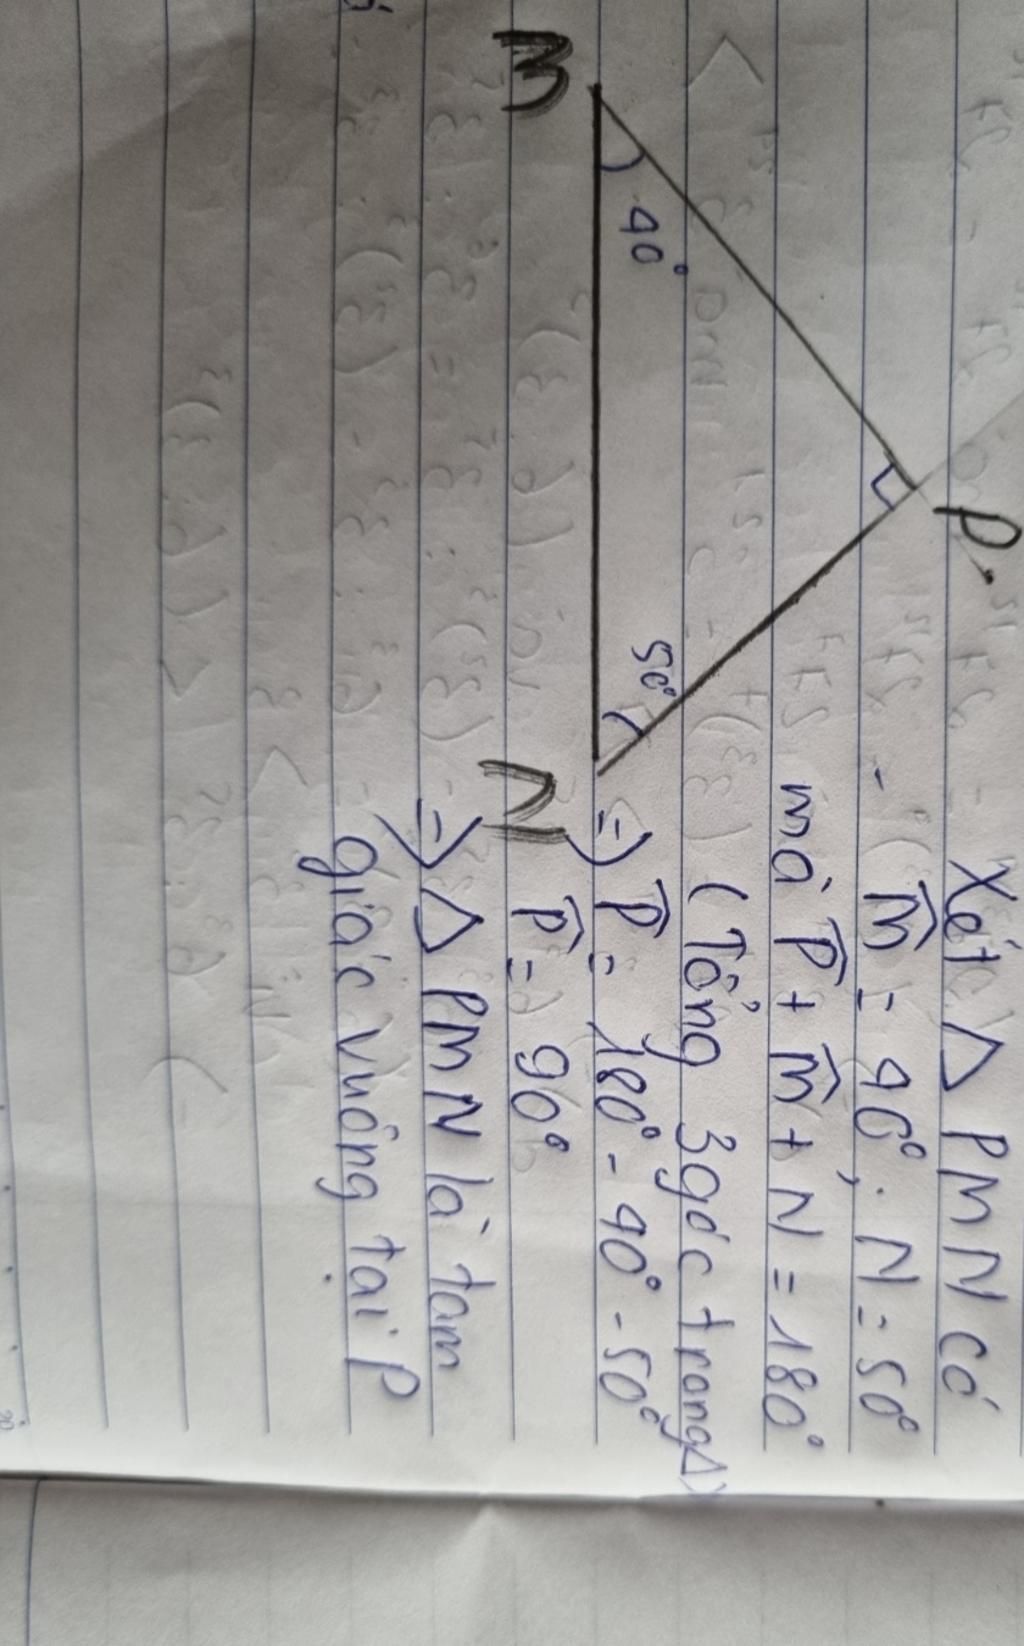 M
40°
P
50°
N
Xét △ PMN có
M̂ = 40°, N = 50°
mà P̂ + M̂ + N = 180°
(Tổng 3 góc trong △)
=) P̂ = 180° - 40° - 50°
P̂ = 90°
=) △ PMN là tam
giác vuông tại P